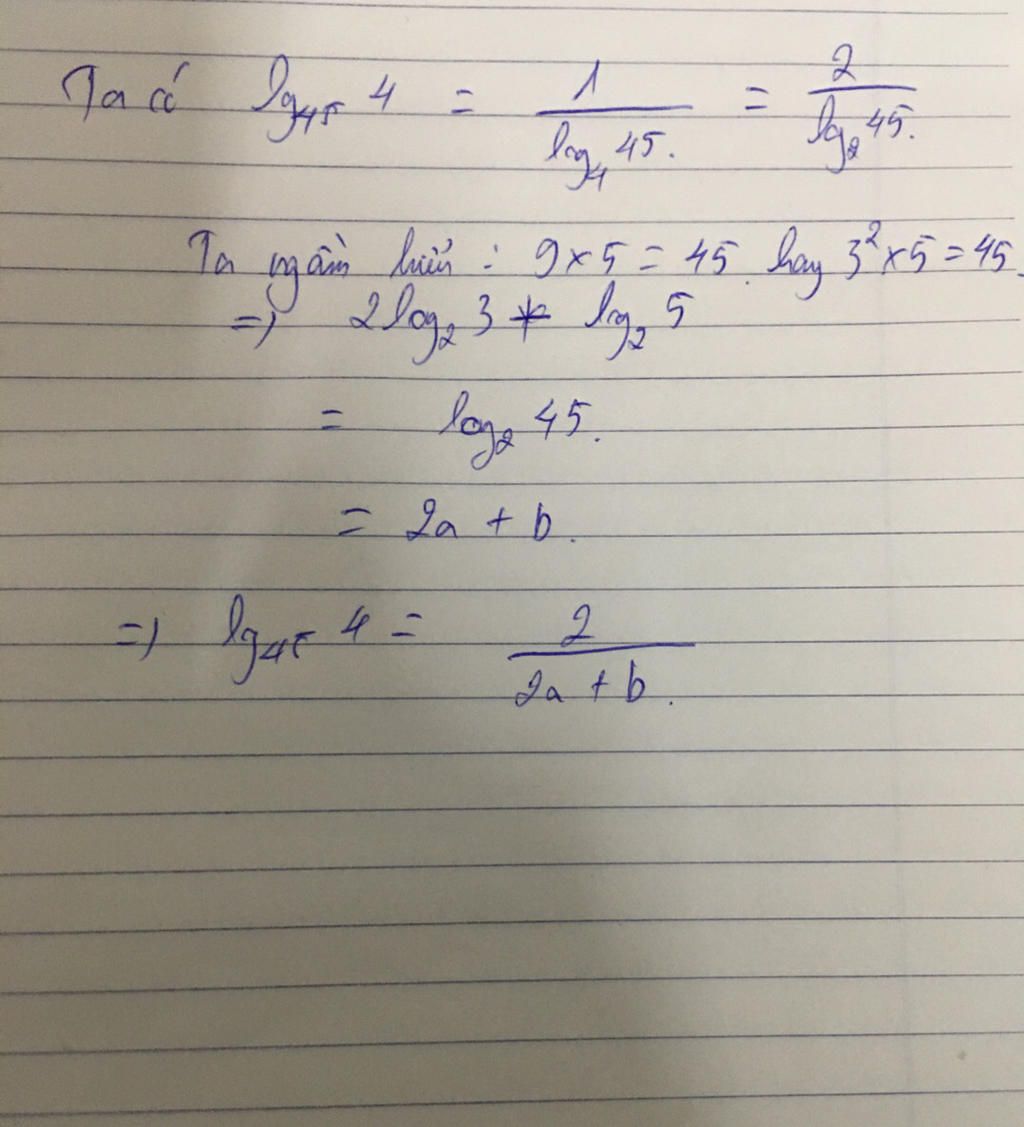 Ta có lg₄₅ 4 = 1 / log₄ 45. = 2 / log₂ 45.
Ta ngầm hiểu : 9 x 5 = 45. hay 3² x 5 = 45.
=) 2 log₂ 3 + log₂ 5
= log₂ 45.
= 2a + b.
=) lg₄₅ 4 = 2 / 2a + b.